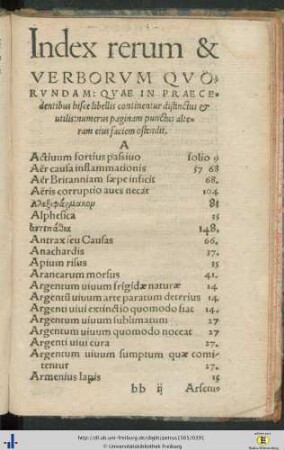 Index rerum &
VERBORVM QVO-
RVNDAM: QVAE IN PRAECE-
dentibus hisce libellis continentur distinctus &
utilis: numerus paginam punctus alte-
ram eius faciem ostendit.
A
Actiuum fortius passiuo folio 9
Aër causa inflammationis 57 68
Aër Britanniam sæpe inficit 68.
Aëris corruptio aues necat 104
Αλεξιφάρμακομ 81
Alphesica 15
148.
Antrax seu Causas 66.
Anachardis 37.
Apium risus 15
Aranearum morsus 41.
Argentum uiuum frigidæ naturæ 14
Argentũ uiuum arte paratum deterius 14
Argenti uiui extinctio quomodo fiat 14.
Argentum uiuum sublimatum 27
Argentum uiuum quomodo noceat 27
Argenti uiui cura 27.
Argentum uiuum sumptum quæ comi-
tentur 27.
Armenius lapis 15
bb ij Arsenus
http://dl.ub.uni-freiburg.de/diglit/petrus1565/0391
© Universitätsbibliothek Freiburg